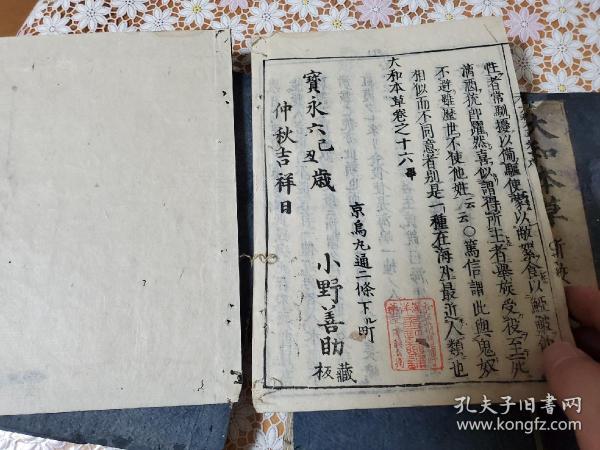 性者常馴擾以備驅使蒙以敝絮食以
清酒犹郎躍然喜似謂得所主者擧族受役至死
不避雖歷世不使他姓云云〇篤信謂此與鬼奴
相似而不同意者别是一種在海外最近人類也
大和本草卷之十六畢
寶永六己丑歳
仲秋吉祥日
京烏丸通二條下ル町
小野善助
藏板
大和本草
孔夫子旧书网
www.kongfz.com